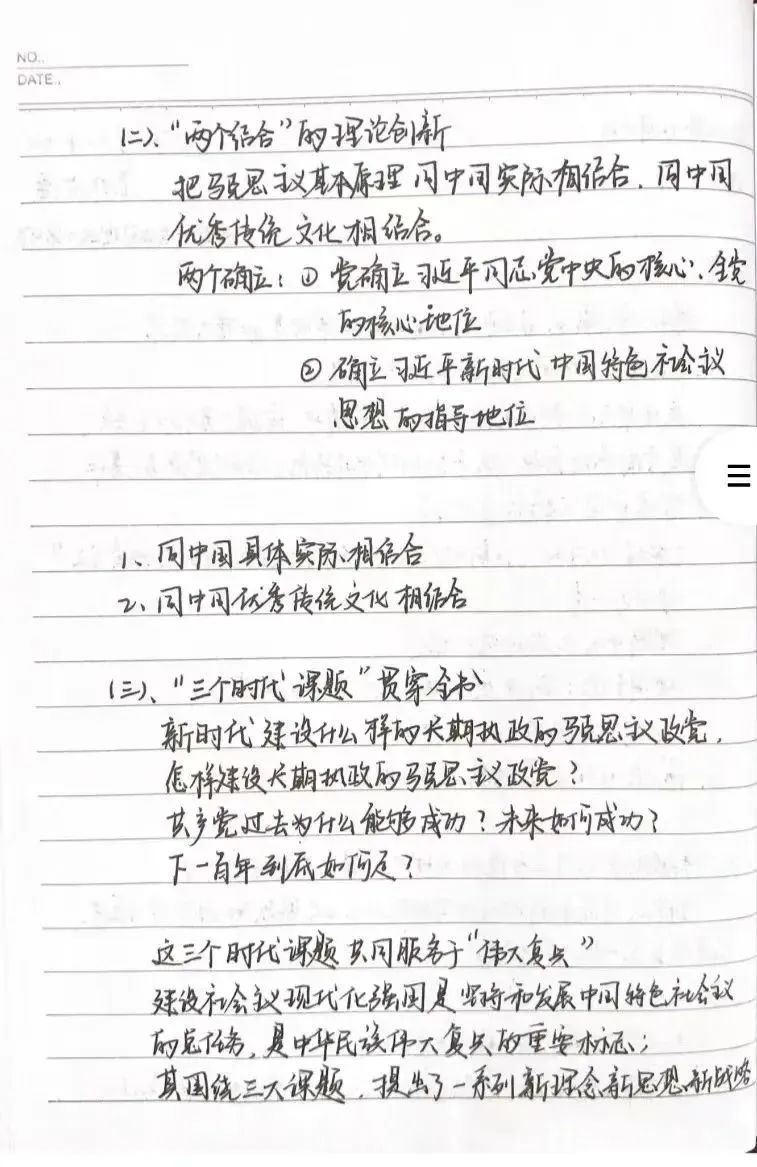 NO..
DATE.
(二)、“两个结合”的理论创新
把马克思主义基本原理同中国实际相结合、同中国
优秀传统文化相结合。
两个确立：① 党确立习近平同志党中央的核心、全党
的核心地位
② 确立习近平新时代中国特色社会主义
思想的指导地位
1、同中国具体实际相结合
2、同中国优秀传统文化相结合
(三)、“三个时代课题”贯穿全书
新时代建设什么样的长期执政的马克思主义政党，
怎样建设长期执政的马克思主义政党？
共产党过去为什么能够成功？未来如何成功？
下一百年到底如何走？
这三个时代课题共同服务于“伟大复兴”
建设社会主义现代化强国是坚持和发展中国特色社会主义
的总任务，是中华民族伟大复兴的重要标志；
其围绕三大课题，提出了一系列新理念新思想新战略